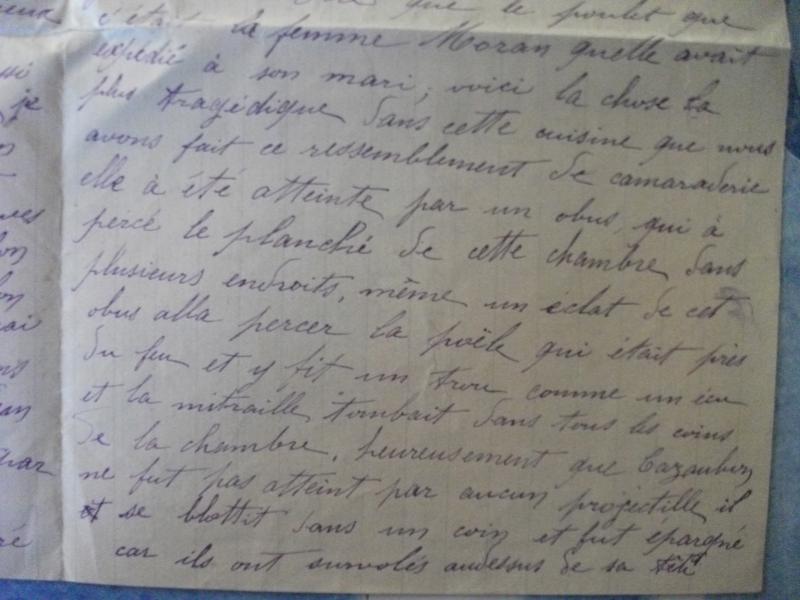 que le poulet que
c'était la femme Moran quelle avait
expédié à son mari; voici la chose la
plus tragédique dans cette cuisine que nous
avons fait ce ressemblement de camaraderie
elle à été atteinte par un obus, qui à
percé le planché de cette chambre dans
plusieurs endroits, même un éclat de cet
obus alla percer la poële qui était près
du feu et y fit un trou comme un écu
et la mitraille tombait dans tous les coins
de la chambre, heureusement que Cazaubon
ne fut pas atteint par aucun projectille il
et se blottit dans un coin et fut épargné
car ils ont survolés audessus de sa tête